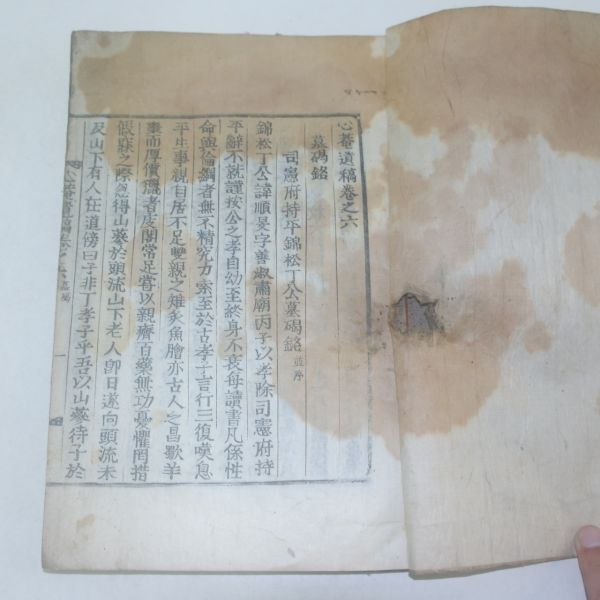 心菴遺稿卷之六
墓碣銘
司憲府持平錦松丁公墓碣銘 並序
錦松丁公諱順晏字善淑肅廟丙子以孝除司憲府持
平辭不就謹按公之孝自幼至終身不衰每讀書凡係性
命與倫綱者無不精究力索至於古孝子言行三復嘆息
平生事親自居不足雙親之雉炙魚膾亦古人之昌歜羊
棗而厚價鬻者皮閣常足嘗以親癠百藥無功憂懼罔措
假寐之際忽得山蔘於頭流山下老人卽日遂向頭流未
及山下有人在道傍曰子非丁孝子乎吾以山蔘待子於
心菴遺稿卷之六 墓碣 一